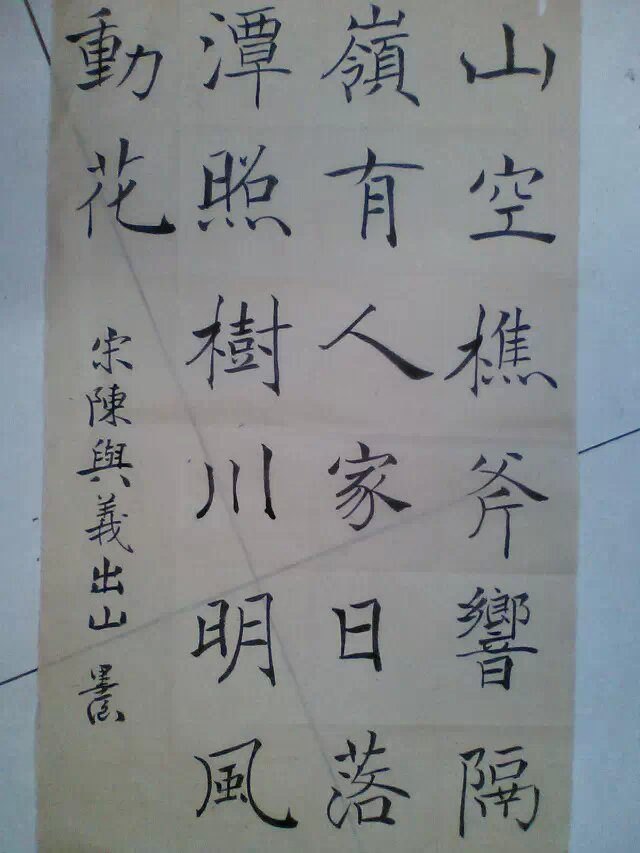 山空樵斧響隔
嶺有人家日落
潭照樹川明風
動花
宋陳與義出山